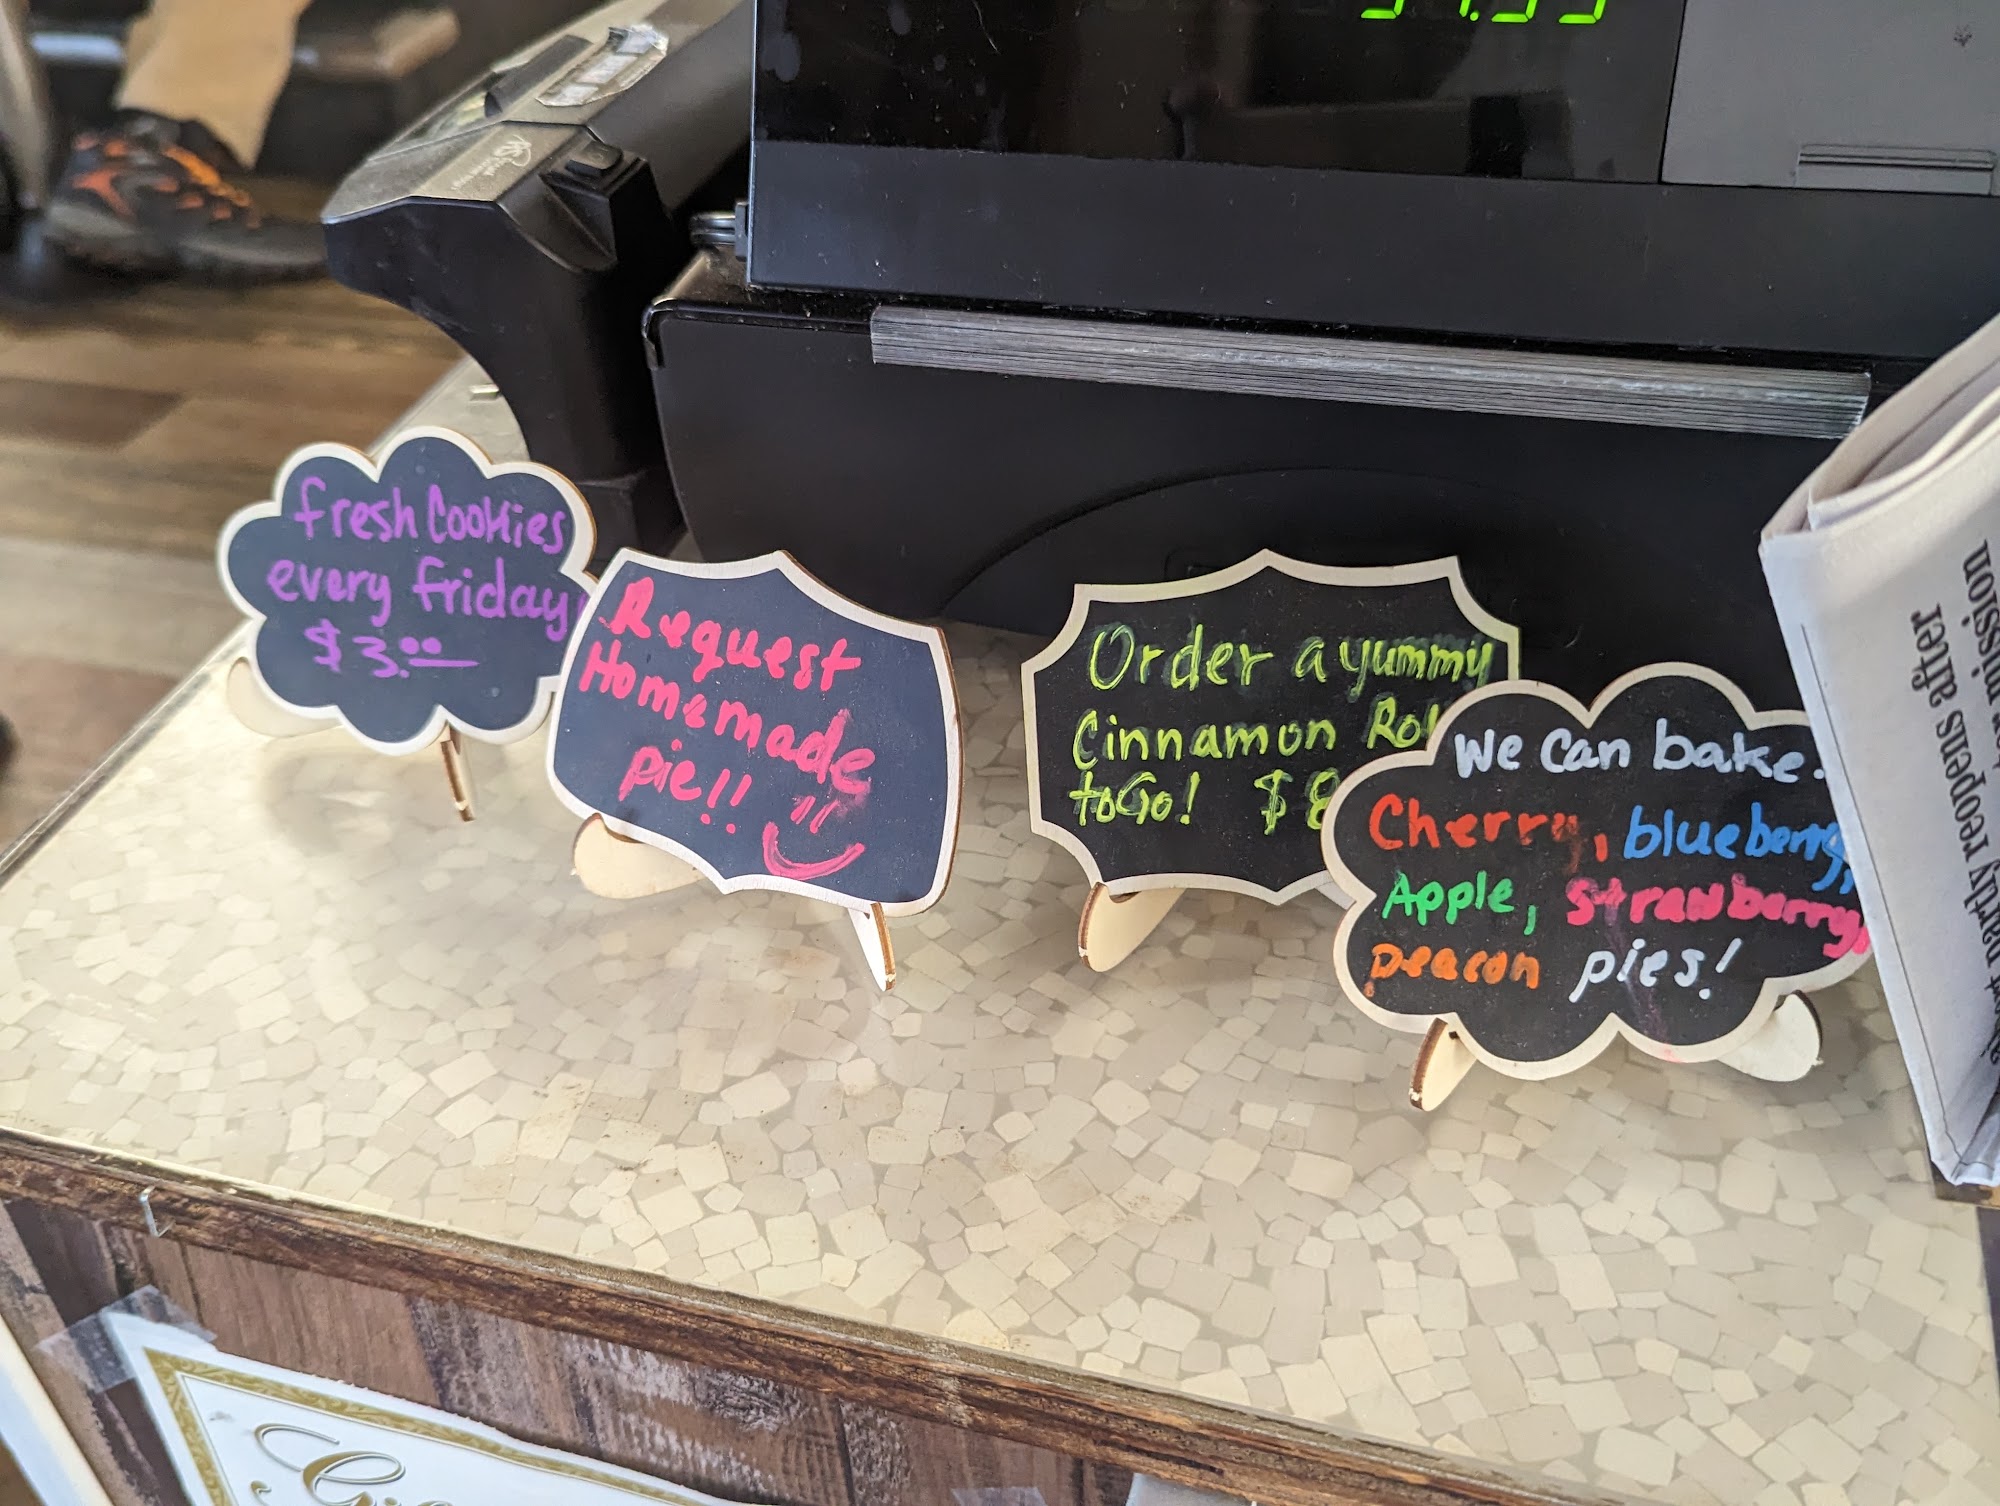 fresh Cookies
every friday
$3.00
Request
Homemade
pie!!
Order a yummy
Cinnamon Rol
toGo! $8
We Can bake.
Cherry, blueberry,
Apple, Strawberry,
peacon pies!
partly reopens after
mission